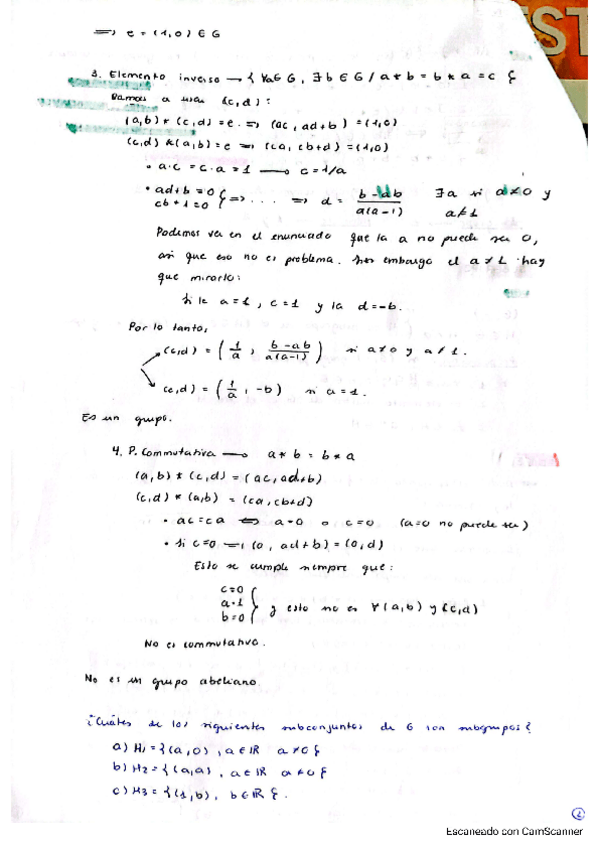 ST
⟹ e = (1,0) ∈ G
3. Elemento inverso → { ∀a∈G, ∃b∈G / a*b = b*a = e }
Vamos a usar (c,d):
(a,b)*(c,d) = e ⟹ (ac, ad+b) = (1,0)
(c,d)*(a,b) = e ⟹ (ca, cb+d) = (1,0)
• a·c = c·a = 1 → c = 1/a
• ad+b = 0
cb+1 = 0 } ⟹ ... ⟹ d = (b-ab)/(a(a-1)) ∃a si a≠0 y a≠1
Podemos ver en el enunciado que la a no puede ser 0,
así que eso no es problema. Sin embargo el a≠1 hay
que mirarlo:
Si le a = 1, c = 1 y la d = -b.
Por lo tanto,
(c,d) = (1/a, (b-ab)/(a(a-1))) si a≠0 y a≠1.
(c,d) = (1/a, -b) si a = 1.
Es un grupo.
4. P. Commutativa → a*b = b*a
(a,b)*(c,d) = (ac, ad+b)
(c,d)*(a,b) = (ca, cb+d)
• ac = ca ⟺ a=0 o c=0 (a=0 no puede ser)
• si c=0 ⟹ (0, ad+b) = (0,d)
Esto se cumple siempre que:
c=0
a=1
b=0 } y esto no es ∀(a,b) y (c,d)
No es commutativa.
No es un grupo abeliano.
¿Cuáles de los siguientes subconjuntos de G son subgrupos?
a) H1 = {(a,0), a∈ℝ a≠0}
b) H2 = {(a,a), a∈ℝ a≠0}
c) H3 = {(1,b), b∈ℝ}.
2
Escaneado con CamScanner